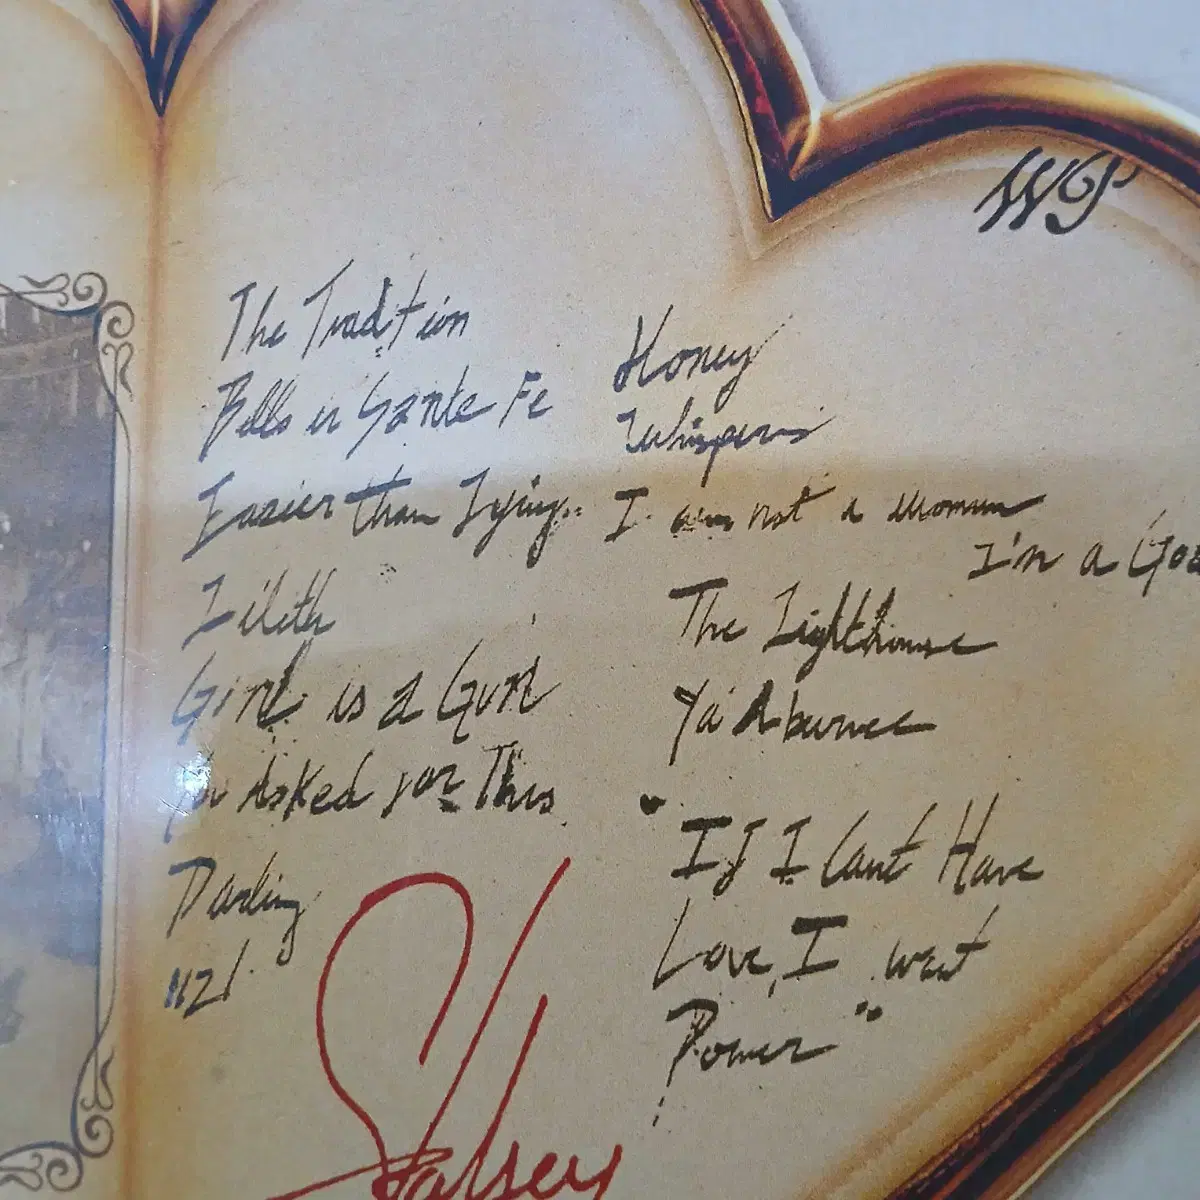 WP
The Tradition
Bells in Santa Fe
Easier than Lying
Lilith
Girl is a Gun
You Asked for This
Darling
1121
Honey
Whispers
I am not a woman
I'm a God
The Lighthouse
Ya'Aburnee
"If I Can't Have
Love, I want
Power"
Halsey